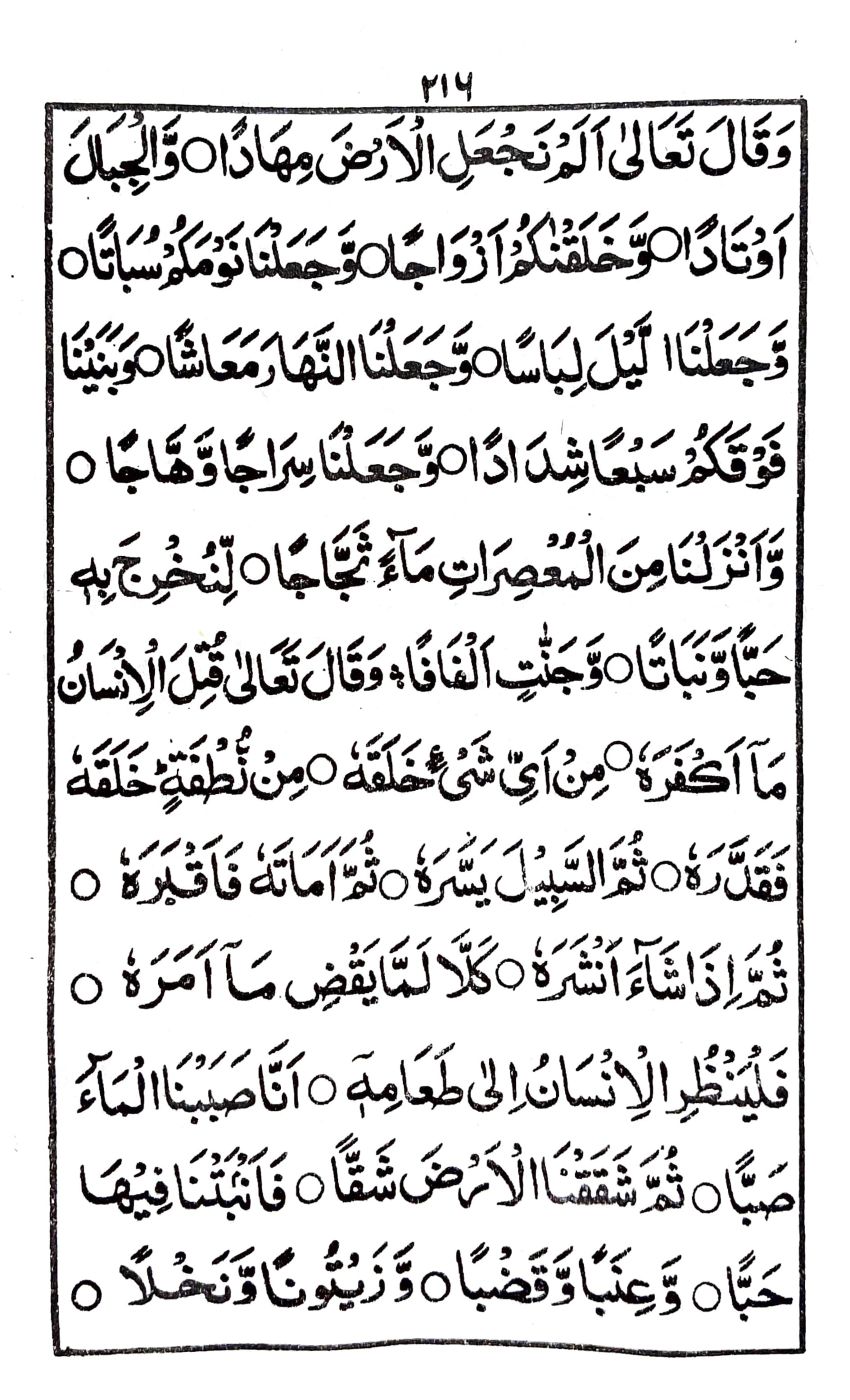 ۲۱۶
وَقَالَ تَعَالىٰ اَلَمْ نَجْعَلِ الْاَرْضَ مِهَادًا○ وَّالْجِبَالَ
اَوْتَادًا○ وَّخَلَقْنٰكُمْ اَزْوَاجًا○ وَّجَعَلْنَا نَوْمَكُمْ سُبَاتًا○
وَّجَعَلْنَا الَّيْلَ لِبَاسًا○ وَّجَعَلْنَا النَّهَارَ مَعَاشًا○ وَبَنَيْنَا
فَوْقَكُمْ سَبْعًا شِدَادًا○ وَّجَعَلْنَا سِرَاجًا وَّهَّاجًا ○
وَّاَنْزَلْنَا مِنَ الْمُعْصِرَاتِ مَآءً ثَجَّاجًا○ لِّنُخْرِجَ بِهٖ
حَبًّا وَّنَبَاتًا○ وَّجَنّٰتٍ اَلْفَافًا؞ وَقَالَ تَعَالىٰ قُتِلَ الْاِنْسَانُ
مَآ اَكْفَرَهٗ○ مِنْ اَيِّ شَيْءٍ خَلَقَهٗ ○ مِنْ نُّطْفَةٍؕ خَلَقَهٗ
فَقَدَّرَهٗ○ ثُمَّ السَّبِيْلَ يَسَّرَهٗ○ ثُمَّ اَمَاتَهٗ فَاَقْبَرَهٗ ○
ثُمَّ اِذَا شَآءَ اَنْشَرَهٗ○ كَلَّا لَمَّا يَقْضِ مَآ اَمَرَهٗ ○
فَلْيَنْظُرِ الْاِنْسَانُ اِلىٰ طَعَامِهٖٓ ○ اَنَّا صَبَبْنَا الْمَآءَ
صَبًّا○ ثُمَّ شَقَقْنَا الْاَرْضَ شَقًّا○ فَاَنْبَتْنَا فِيْهَا
حَبًّا○ وَّعِنَبًا وَّقَضْبًا○ وَّزَيْتُونًا وَّنَخْلًا ○